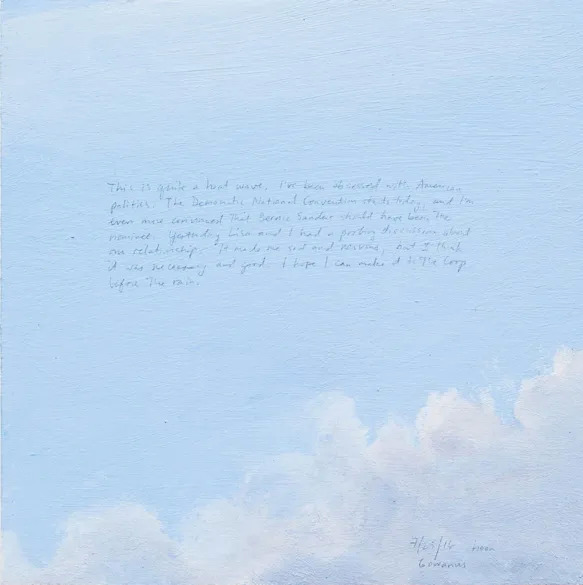 This is quite a heat wave. I've been obsessed with American
politics. The Democratic National Convention starts today, and I'm
even more convinced that Bernie Sanders should have been the
nominee. Yesterday Lisa and I had a probing discussion about
our relationship. It made me sad and nervous, but I think
it was necessary and good. I hope I can make it to the Coop
before the rain.
7/25/16 noon